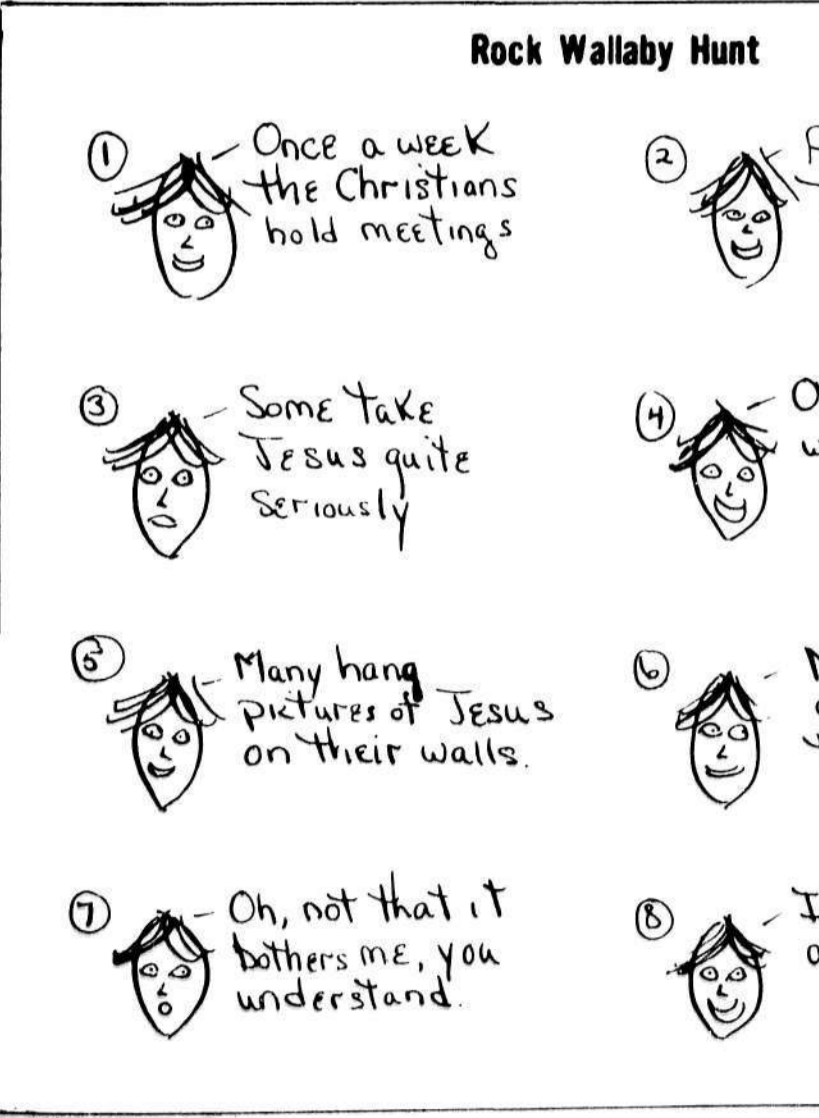 Rock Wallaby Hunt
1
Once a week
the Christians
hold meetings
2
3
Some take
Jesus quite
Seriously
4
5
Many hang
pictures of Jesus
on their walls.
6
7
Oh, not that it
bothers me, you
understand.
8